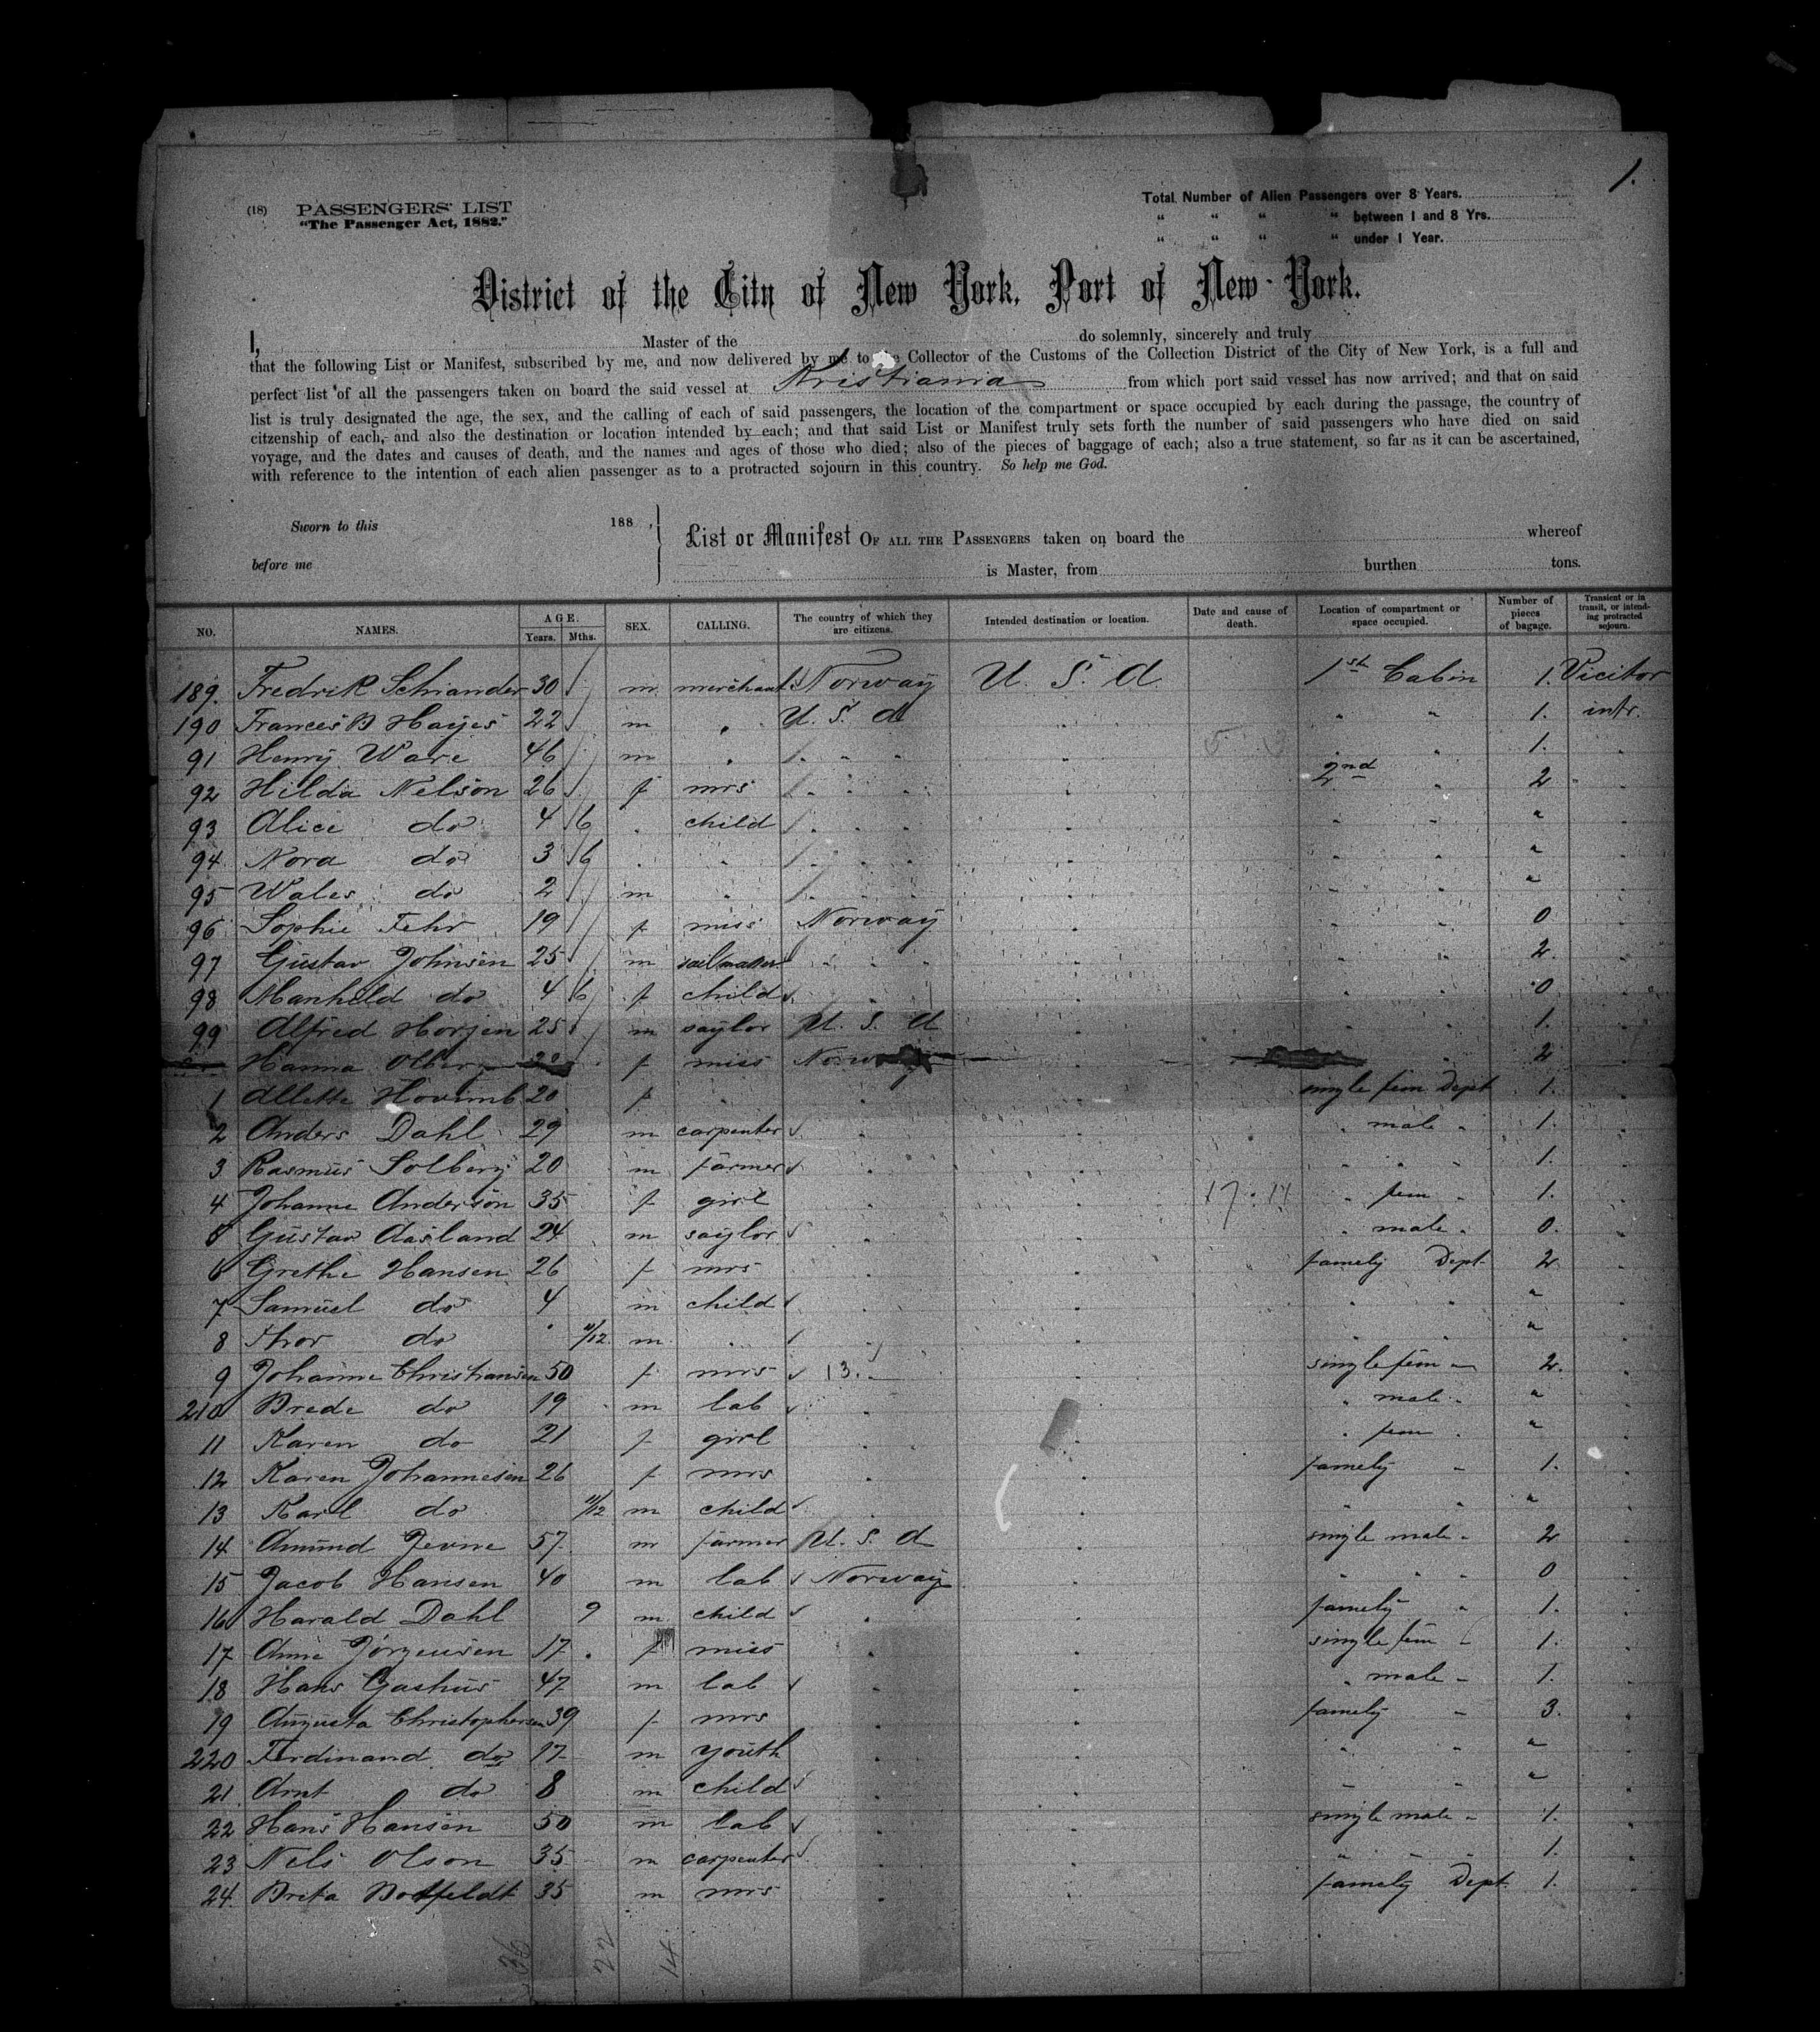 1.
(18) PASSENGERS' LIST
"The Passenger Act, 1882."
Total Number of Alien Passengers over 8 Years.
" " " " between 1 and 8 Yrs.
" " " " under 1 Year.
District of the City of New York, Port of New-York.
I, Master of the do solemnly, sincerely and truly
that the following List or Manifest, subscribed by me, and now delivered by me to the Collector of the Customs of the Collection District of the City of New York, is a full and
perfect list of all the passengers taken on board the said vessel at Kristiania from which port said vessel has now arrived; and that on said
list is truly designated the age, the sex, and the calling of each of said passengers, the location of the compartment or space occupied by each during the passage, the country of
citzenship of each, and also the destination or location intended by each; and that said List or Manifest truly sets forth the number of said passengers who have died on said
voyage, and the dates and causes of death, and the names and ages of those who died; also of the pieces of baggage of each; also a true statement, so far as it can be ascertained,
with reference to the intention of each alien passenger as to a protracted sojourn in this country. So help me God.
Sworn to this 188 ,
before me
List or Manifest OF ALL THE PASSENGERS taken on board the whereof
is Master, from burthen tons.
NO. NAMES. AGE. Years. Mths. SEX. CALLING. The country of which they are citizens. Intended destination or location. Date and cause of death. Location of compartment or space occupied. Number of pieces of bagage. Transient or in transit, or intending protracted sojourn.
189. Fredrik Schiander 30 m. merchant Norway U. S. A. 1st Cabin 1. Vicitor
190 Frances B Hayes 22 m " U. S. A " " 1. intr.
91 Henry Ware 46 m " " " 1.
92 Hilda Nelson 26 f mrs " " 2nd " 2
93 Alice do 4 6 " child " " " "
94 Nora do 3 6 " " " " " "
95 Wales do 2 m " " " " "
96 Sophie Fehr 19 f miss Norway " " 0
97 Gustav Johnsen 25 m sailmaker " " " 2
98 Manhild do 4 6 f child " " " 0
99 Alfred Horjen 25 m saylor U. S. A " " 1.
Hanna f miss Norway " 2
1 20 f " " single fem Dept 1.
2 Anders Dahl 29 m carpenter " " male " 1.
3 Rasmus Solberg 20 m farmer " " " " 1.
4 Johanne Anderson 35 f girl " 17. 14 " fem " 1.
5 Gustav Aasland 24 m saylor " " male " 0.
6 Grethe Hansen 26 f mrs " " famely Dept 2
7 Samuel do 4 m child " " " " "
8 Thor do " 11/12 m " " " " " "
9 Johanne Christiansen 50 f mrs 13. " single fem " 2.
210 Brede do 19 m lab " " " male " "
11 Karen do 21 f girl " " " fem " "
12 Karen Johannesen 26 f mrs " " famely " 1.
13 Karl do 11/12 m child " " " " "
14 Amund Jevne 57 m farmer U. S. A " single male " 2
15 Jacob Hansen 40 m lab Norway " " " " 0
16 Harald Dahl 9 m child " " famely " 1.
17 Anne Jörgensen 17 f miss " " single fem " 1.
18 Hans Gashus 47 m lab " " " male " 1.
19 Augusta Christophersen 39 f mrs " " famely " 3.
220 Ferdinand do 17 m youth " " " " "
21 Arnt do 8 m child " " " " "
22 Hans Hansen 50 m lab " " single male " 1.
23 Nels Olson 35 m carpenter " " " " " 1.
24. Brita Botfeldt 35 m mrs " " famely Dept. 1.
36 22 14